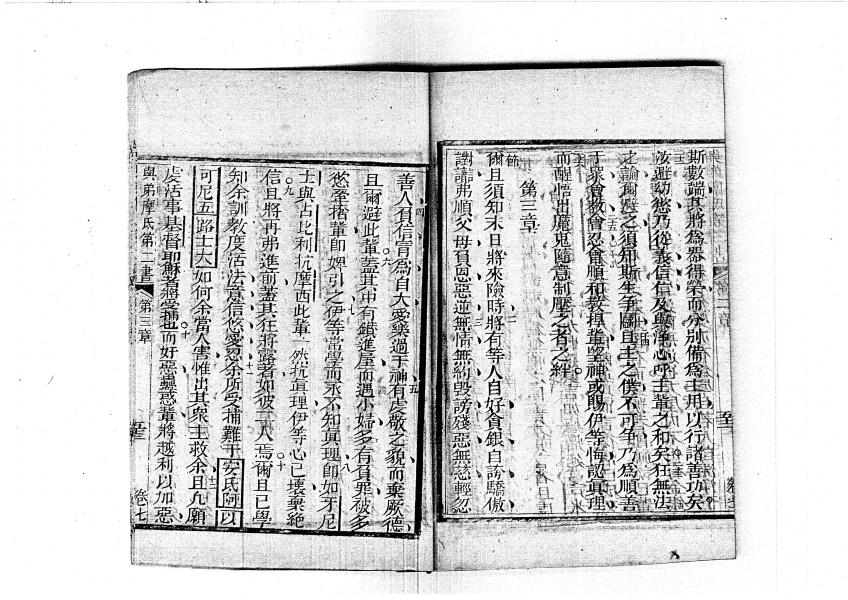 斯數端其將為器得榮而分別備為主用以行諸善功矣
汝避幼慾乃從義信仁及與淨心呼主輩之和矣狂無法
之論爾避之須知斯生爭鬬且主之僕不可爭乃為順善
于衆會教會忍會順和教桿真望神或賜伊等悔認真理
而醒悟出魔鬼隨意制壓之者之絆
第三章
爾且須知末日將來險時將有等人自好貪銀自誇驕傲
謗讟弗順父母負恩惡逆無情無約毀謗殘惡無慈輕忽
善人負信肯為自大愛樂過于神有虔敬之貌而棄厥德
且爾避此輩蓋其中有鑚進屋而遇小婦多有負罪被多
慾牽捨輩即娛引之伊等常學而永不知真理即如牙尼
士與占比利抗摩西此輩一然抗真理伊等心已壞棄絕
信且將再弗進前蓋其狂將露著如彼二人焉爾且已學
知余訓教度活法意信悠愛忍余所受捕難于安氏阿以
可尼五路士大如何余當人害惟出其衆主救余且凡願
虔活事基督耶穌者將受捕也而好惡蠱惑輩將越利以加惡
與弟摩氏第二書 第三章 卷七